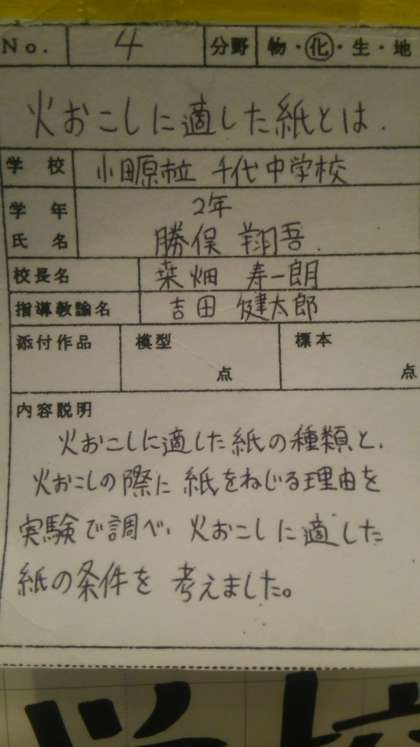 No. 4 分野 物・化・生・地
火おこしに適した紙とは.
学校 小田原市立 千代中学校
学年 2年
氏名 勝俣 翔吾
校長名 桒畑 寿一朗
指導教諭名 吉田 健太郎
添付作品 模型 点 標本 点
内容説明
火おこしに適した紙の種類と、
火おこしの際に紙をねじる理由を
実験で調べ、火おこしに適した
紙の条件を考えました。